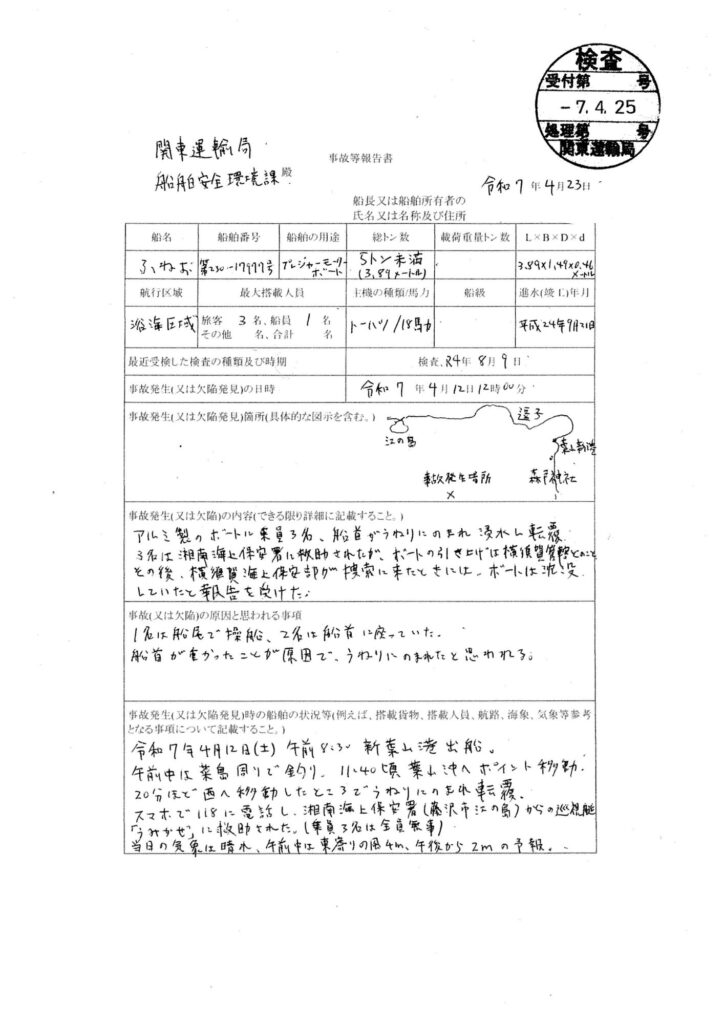 検査
受付第 号
-7.4.25
処理第 号
関東運輸局
関東運輸局
船舶安全環境課 殿
事故等報告書
令和7年4月23日
船長又は船舶所有者の
氏名又は名称及び住所
船名 船舶番号 船舶の用途 総トン数 載荷重量トン数 L×B×D×d
ふねお 第230-17977号 プレジャーモーターボート 5トン未満 (3.89メートル) 3.89×1.49×0.46メートル
航行区域 最大搭載人員 主機の種類/馬力 船級 進水(竣工)年月
沿海区域 旅客 3名、船員 1名 トーハツ/18馬力 平成24年9月21日
その他 名、合計 名
最近受検した検査の種類及び時期 検査、R4年8月9日
事故発生(又は欠陥発見)の日時 令和7年4月12日12時00分
事故発生(又は欠陥発見)箇所(具体的な図示を含む。)
逗子
江の島
葉山新港
事故発生場所
×
森戸神社
事故発生(又は欠陥)の内容(できる限り詳細に記載すること。)
アルミ製のボートに乗員3名、船首がうねりにのまれ浸水し転覆
3名は湘南海上保安署に救助されたが、ボートの引き上げは横須賀管轄とのこと
その後、横須賀海上保安部が捜索に来たときには、ボートは沈没
していたと報告を受けた。
事故(又は欠陥)の原因と思われる事項
1名は船尾で操船、2名は船首に座っていた。
船首が重かったことが原因で、うねりにのまれたと思われる。
事故発生(又は欠陥発見)時の船舶の状況等(例えば、搭載貨物、搭載人員、航路、海象、気象等参考
となる事項について記載すること。)
令和7年4月12日(土) 午前8:30 新葉山港出船。
午前中は菜島周りで釣り。11:40頃葉山沖へポイント移動。
20分ほどで西へ移動したところでうねりにのまれ転覆。
スマホで118に電話し、湘南海上保安署(藤沢市江の島)からの巡視艇
「うみかぜ」に救助された。(乗員3名は全員無事)
当日の気象は晴れ、午前中は東寄りの風4m、午後から2mの予報。